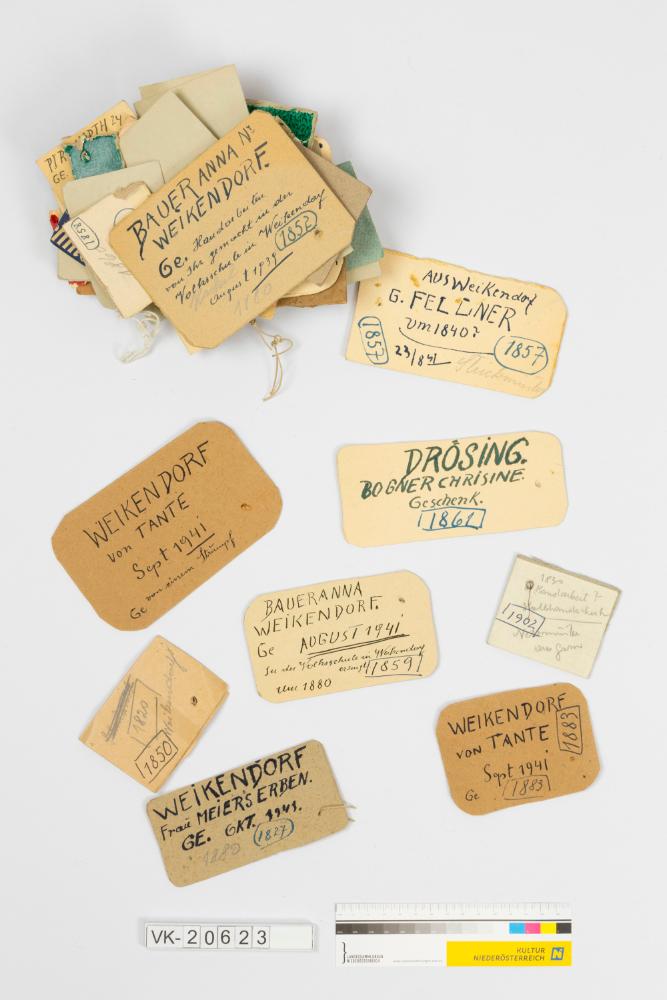 PIR
TH 24
GE.
1858
BAUER ANNA N:
WEIKENDORF.
Ge. Handarbeiten
von Ihr gemacht in der
Volksschule in Weikendorf
August 1939 1852
1880
AUS Weikendorf
G. FELLNER
um 1840?
1857
23/8 41
1857
WEIKENDORF
von TANTE
Sept 1941
Ge von einem Strumpf
DRÖSING.
BOGNER CHRISINE.
Geschenk.
1861
BAUER ANNA
WEIKENDORF.
Ge AUGUST 1941
In der Volksschule in Weikendorf
erzeugt 1859
Um 1880
1830
Handarbeit ?
1902
1820
1850
Weikendorf
WEIKENDORF
von TANTE
Sept 1941
Ge 1883
1883
WEIKENDORF
Frau MEIERS ERBEN.
GE. OKT. 1941.
1880 1827
VK-20623
LANDESSAMMLUNGEN
NIEDERÖSTERREICH
KULTUR
NIEDERÖSTERREICH